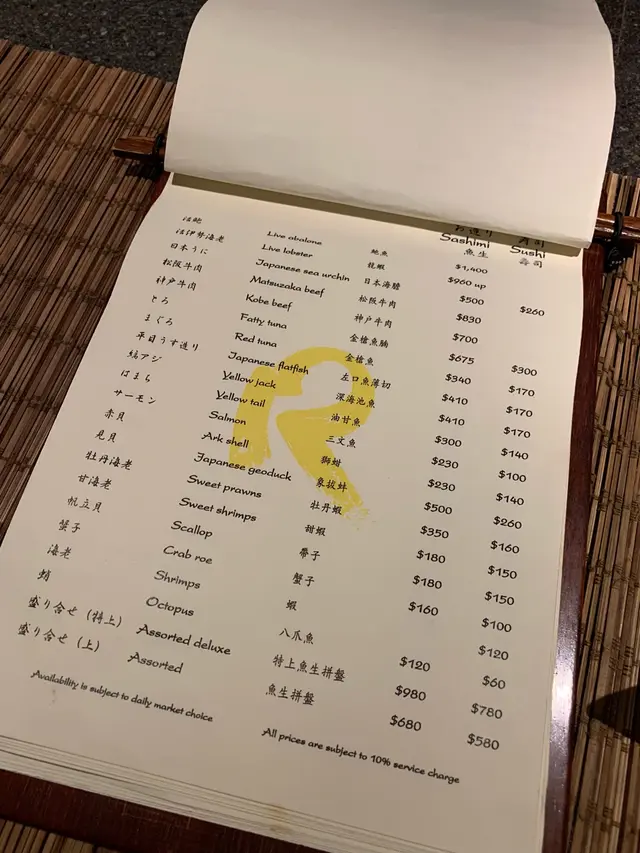 お造り 寿司
Sashimi Sushi
魚生 壽司
活鮑 Live abalone 鮑魚 $1,400
活伊勢海老 Live lobster 龍蝦 $960 up
日本うに Japanese sea urchin 日本海膽 $500 $260
松阪牛肉 Matsuzaka beef 松阪牛肉 $830
神戸牛肉 Kobe beef 神戸牛肉 $700
とろ Fatty tuna 金槍魚腩 $675 $300
まぐろ Red tuna 金槍魚 $340 $170
平目うす造り Japanese flatfish 左口魚薄切 $410 $170
縞アジ Yellow jack 深海池魚 $410 $170
はまち Yellow tail 油甘魚 $300 $140
サーモン Salmon 三文魚 $230 $100
赤貝 Ark shell 獅蚶 $230 $140
見貝 Japanese geoduck 象拔蚌 $500 $260
牡丹海老 Sweet prawns 牡丹蝦 $350 $160
甘海老 Sweet shrimps 甜蝦 $180 $150
帆立貝 Scallop 帶子 $180 $150
蟹子 Crab roe 蟹子 $160 $100
海老 Shrimps 蝦 $120
蛸 Octopus 八爪魚 $120 $60
盛り合せ (特上) Assorted deluxe 特上魚生拼盤 $980 $780
盛り合せ (上) Assorted 魚生拼盤 $680 $580
Availability is subject to daily market choice
All prices are subject to 10% service charge